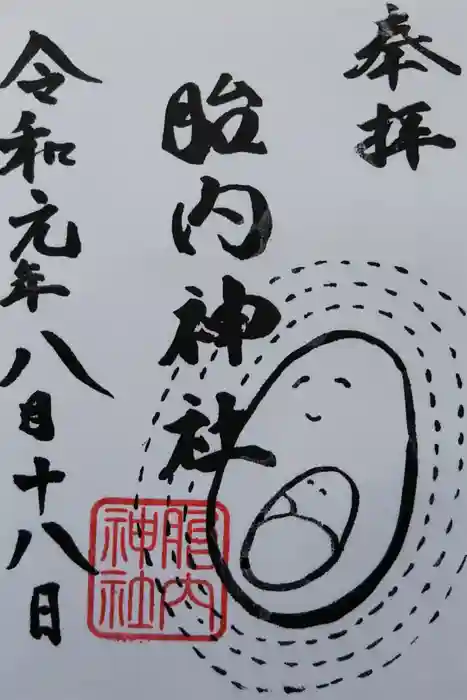 奉拝
胎内神社
胎内
神社
令和元年八月十八日